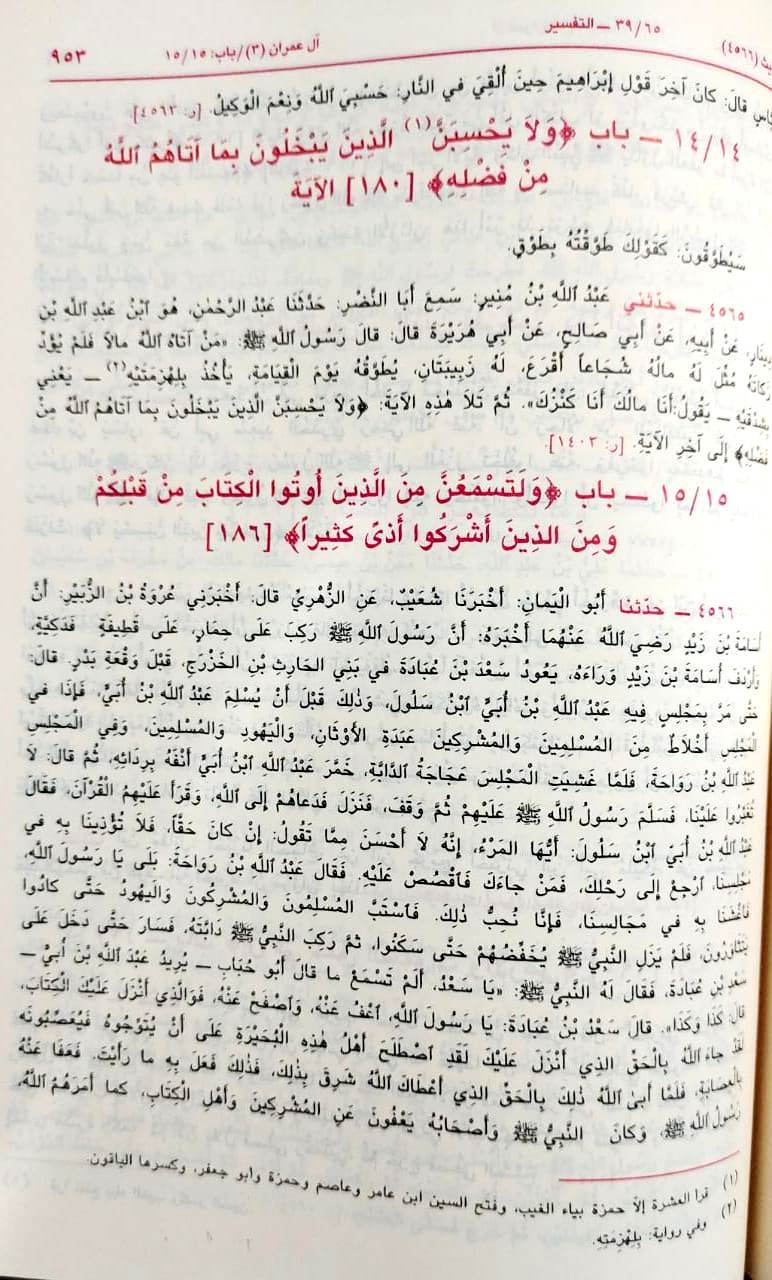 ٣٩/٦٥ — التفسير
(٤٥٦٦)
آل عمران (٣)/باب: ١٥/١٥
٩٥٣
قالَ: كانَ آخِرَ قَوْلِ إِبْرَاهِيمَ حِينَ أُلْقِيَ في النَّارِ: حَسْبِيَ ٱللَّهُ وَنِعْمَ الْوَكِيلُ. [ر: ٤٥٦٣]
١٤/١٤ — باب ﴿وَلَا يَحْسِبَنَّ(١) الَّذِينَ يَبْخَلُونَ بِمَا آتَاهُمُ اللَّهُ
مِنْ فَضْلِهِ﴾ [١٨٠] الآيَةَ
سَيُطَوَّقُونَ: كَقَوْلِكَ طَوَّقْتُهُ بِطَوْقٍ.
٤٥٦٥ — حدّثني عَبْدُ ٱللَّهِ بْنُ مُنِيرٍ: سَمِعَ أَبَا النَّضْرِ: حَدَّثَنَا عَبْدُ الرَّحْمٰنِ، هُوَ ٱبْنُ عَبْدِ ٱللَّهِ بْنِ
دِينَارٍ، عَنْ أَبِيهِ، عَنْ أَبِي صَالِحٍ، عَنْ أَبِي هُرَيْرَةَ قالَ: قالَ رَسُولُ ٱللَّهِ ﷺ: «مَنْ آتَاهُ ٱللَّهُ مالاً فَلَمْ يُؤَدِّ
زَكاتَهُ مُثِّلَ لَهُ مالُهُ شُجَاعاً أَقْرَعَ، لَهُ زَبِيبَتَانِ، يُطَوَّقُهُ يَوْمَ الْقِيَامَةِ، يَأْخُذُ بِلِهْزِمَتَيْهِ(٢) — يَعْنِي
بِشِدْقَيْهِ — يَقُولُ: أَنَا مالُكَ أَنَا كَنْزُكَ». ثُمَّ تَلَا هٰذِهِ الآيَةَ: ﴿وَلَا يَحْسِبَنَّ الَّذِينَ يَبْخَلُونَ بِمَا آتَاهُمُ ٱللَّهُ مِنْ
فَضْلِهِ﴾ إِلَى آخِرِ الآيَةِ. [ر: ١٤٠٣]
١٥/١٥ — باب ﴿وَلَتَسْمَعُنَّ مِنَ الَّذِينَ أُوتُوا الْكِتَابَ مِنْ قَبْلِكُمْ
وَمِنَ الَّذِينَ أَشْرَكُوا أَذىً كَثِيراً﴾ [١٨٦]
٤٥٦٦ — حدّثنا أَبُو الْيَمَانِ: أَخْبَرَنَا شُعَيْبٌ، عَنِ الزُّهْرِيِّ قالَ: أَخْبَرَنِي عُرْوَةُ بْنُ الزُّبَيْرِ: أَنَّ
أُسَامَةَ بْنَ زَيْدٍ رَضِيَ ٱللَّهُ عَنْهُمَا أَخْبَرَهُ: أَنَّ رَسُولَ ٱللَّهِ ﷺ رَكِبَ عَلَى حِمَارٍ، عَلَى قَطِيفَةٍ فَدَكِيَّةٍ،
وَأَرْدَفَ أُسَامَةَ بْنَ زَيْدٍ وَرَاءَهُ، يَعُودُ سَعْدَ بْنَ عُبَادَةَ في بَنِي الحَارِثِ بْنِ الخَزْرَجِ، قَبْلَ وَقْعَةِ بَدْرٍ. قالَ:
حَتَّى مَرَّ بِمَجْلِسٍ فِيهِ عَبْدُ ٱللَّهِ بْنُ أُبَيٍّ ٱبْنُ سَلُولَ، وَذٰلِكَ قَبْلَ أَنْ يُسْلِمَ عَبْدُ ٱللَّهِ بْنُ أُبَيٍّ، فَإِذَا في
الْمَجْلِسِ أَخْلَاطٌ مِنَ المُسْلِمِينَ وَالمُشْرِكِينَ عَبَدَةِ الأَوْثَانِ، وَالْيَهُودِ وَالمُسْلِمِينَ، وَفِي الْمَجْلِسِ
عَبْدُ ٱللَّهِ بْنُ رَوَاحَةَ، فَلَمَّا غَشِيَتِ الْمَجْلِسَ عَجَاجَةُ الدَّابَّةِ، خَمَّرَ عَبْدُ ٱللَّهِ ٱبْنُ أُبَيٍّ أَنْفَهُ بِرِدَائِهِ، ثُمَّ قالَ: لَا
تُغَبِّرُوا عَلَيْنَا، فَسَلَّمَ رَسُولُ ٱللَّهِ ﷺ عَلَيْهِمْ ثُمَّ وَقَفَ، فَنَزَلَ فَدَعاهُمْ إِلَى ٱللَّهِ، وَقَرَأَ عَلَيْهِمُ الْقُرْآنَ، فَقَالَ
عَبْدُ ٱللَّهِ بْنُ أُبَيٍّ ٱبْنُ سَلُولَ: أَيُّهَا المَرْءُ، إِنَّهُ لَا أَحْسَنَ مِمَّا تَقُولُ: إِنْ كانَ حَقًّا، فَلَا تُؤْذِينَا بِهِ في
مَجْلِسِنَا، ٱرْجِعْ إِلَى رَحْلِكَ، فَمَنْ جاءَكَ فَٱقْصُصْ عَلَيْهِ. فَقَالَ عَبْدُ ٱللَّهِ بْنُ رَوَاحَةَ: بَلَى يَا رَسُولَ ٱللَّهِ،
فَٱغْشَنَا بِهِ في مَجَالِسِنَا، فَإِنَّا نُحِبُّ ذٰلِكَ. فَٱسْتَبَّ المُسْلِمُونَ وَالمُشْرِكُونَ وَالْيَهُودُ حَتَّى كادُوا
يَتَثَاوَرُونَ، فَلَمْ يَزَلِ النَّبِيُّ ﷺ يُخَفِّضُهُمْ حَتَّى سَكَنُوا، ثمَّ رَكِبَ النَّبِيُّ ﷺ دَابَّتَهُ، فَسَارَ حَتَّى دَخَلَ عَلَى
سَعْدِ بْنِ عُبَادَةَ، فَقَالَ لَهُ النَّبِيُّ ﷺ: «يَا سَعْدُ، أَلَمْ تَسْمَعْ ما قالَ أَبُو حُبَابٍ — يُرِيدُ عَبْدَ ٱللَّهِ بْنَ أُبَيٍّ —
قالَ: كَذَا وَكَذَا». قالَ سَعْدُ بْنُ عُبَادَةَ: يَا رَسُولَ ٱللَّهِ، ٱعْفُ عَنْهُ، وَٱصْفَحْ عَنْهُ، فَوَالَّذِي أَنْزَلَ عَلَيْكَ الْكِتَابَ،
لَقَدْ جاءَ ٱللَّهُ بِالْحَقِّ الَّذِي أَنْزَلَ عَلَيْكَ لَقَدِ ٱصْطَلَحَ أَهْلُ هٰذِهِ الْبُحَيْرَةِ عَلَى أَنْ يُتَوِّجُوهُ فَيُعَصِّبُونَهُ
بِالْعِصَابَةِ، فَلَمَّا أَبىٰ ٱللَّهُ ذٰلِكَ بِالْحَقِّ الَّذِي أَعْطَاكَ ٱللَّهُ شَرِقَ بِذٰلِكَ، فَذٰلِكَ فَعَلَ بِهِ ما رَأَيْتَ. فَعَفَا عَنْهُ
رَسُولُ ٱللَّهِ ﷺ، وَكانَ النَّبِيُّ ﷺ وَأَصْحَابُهُ يَعْفُونَ عَنِ المُشْرِكِينَ وَأَهْلِ الْكِتَابِ، كما أَمَرَهُمُ ٱللَّهُ،
(١) قرأ العشرة إلّا حمزة بياء الغيب، وفتح السين ابن عامر وعاصم وحمزة وأبو جعفر، وكسرها الباقون.
(٢) وفي رواية: بِلِهْزِمَتِهِ.